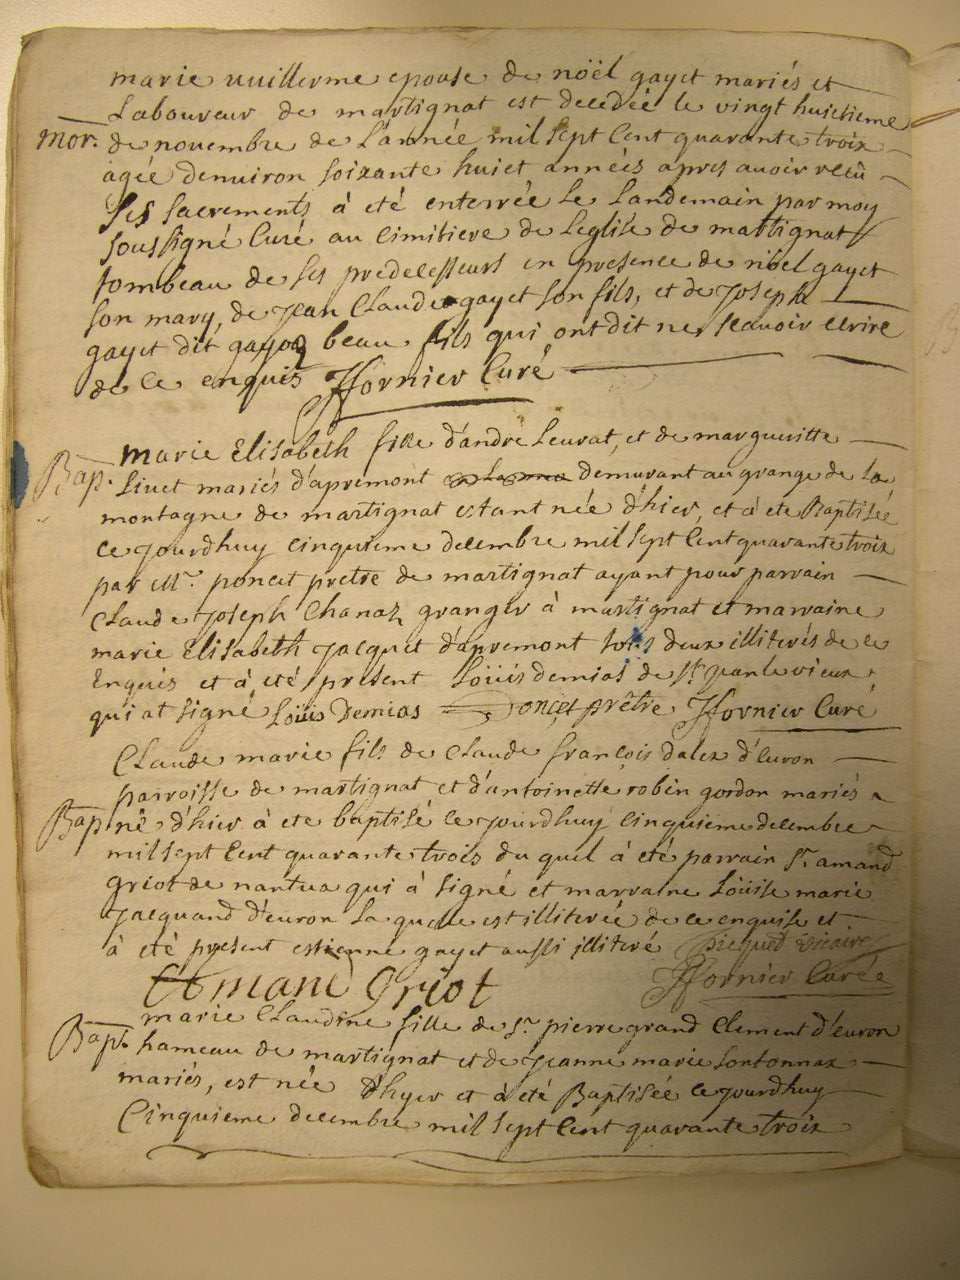 marie vuillerme epouse de noël gayet mariés et
Laboureur de martignat est decedée le vingt huictieme
mor. de novembre de L'année mil sept Cent quarante troix
agée denuiron soixante huict années apres auoir recû
ses sacrements à été enterrée Le Landemain par moy
soussigné Curé au Cimitiere de Leglise de martignat
tombeau de ses predecesseurs en presence de nöel gayet
son mary, de jean Claude gayet son fils, et de joseph
gayet dit beau fils qui ont dit ne scauoir ecrire
de ce enquis Hornier Curé
marie Elisabeth fille d'andre Leurat, et de margueritte
Bap. Livet mariés d'apremont demurant au grange de La
montagne de martignat estant née d'hier, et à ete Baptisée
ce jourdhuy cinquieme decembre mil sept Cent quarante troix
par Mr. poncet pretre de martignat ayant pour parrain
Claude joseph Chanaz granger à martignat et marraine
marie Elisabeth jacquet d'apremont tous deux illiterés de ce
Enquis et à été présent Loüis demias de st jean le vieux
qui at signé Loüis Demias Poncet prêtre Hornier Curé
Claude marie fils de Claude françois dalex d'euron
parroisse de martignat et d'antoinette robin gordon mariés
Bap né d'hier à ete baptisé ce jourdhuy cinquieme decembre
mil sept Cent quarante trois du quel à été parrain sr. amand
griot de nantua qui à signé et marraine Loüise marie
jacquand d'euron La quelle est illiterée de ce enquise et
à été present estienne gayet aussi illiteré vicaire
Amand Griot Hornier Curée
marie Claudine fille de sr. pierre grand Clement d'euron
Bap. hameau de martignat et de jeanne marie sontonnax
mariés, est née d'hyer et à été Baptisée ce jourdhuy
Cinquieme decembre mil sept Cent quarante troix